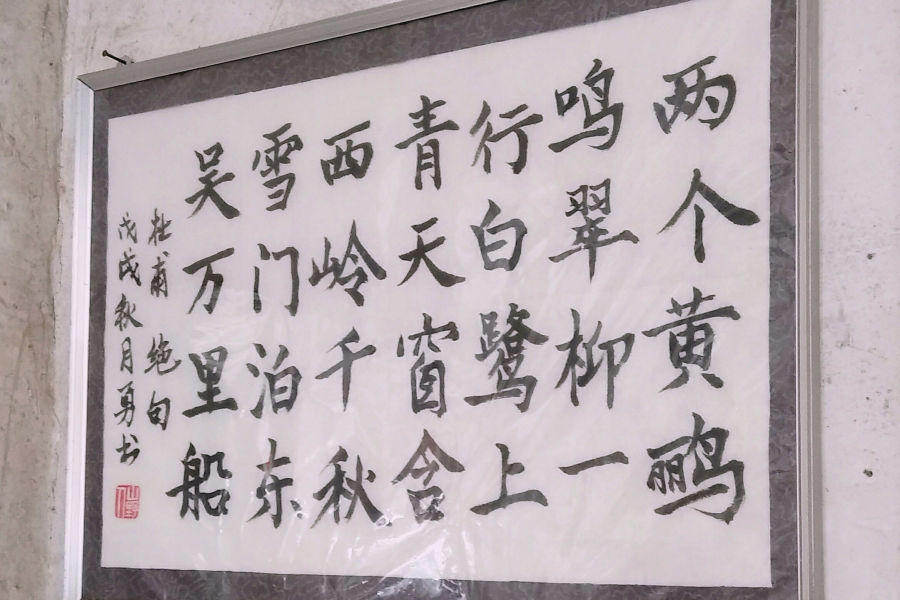 两个黄鹂
鸣翠柳一
行白鹭上
青天窗含
西岭千秋
雪门泊东
吴万里船
杜甫 绝句
戊戌秋月勇书